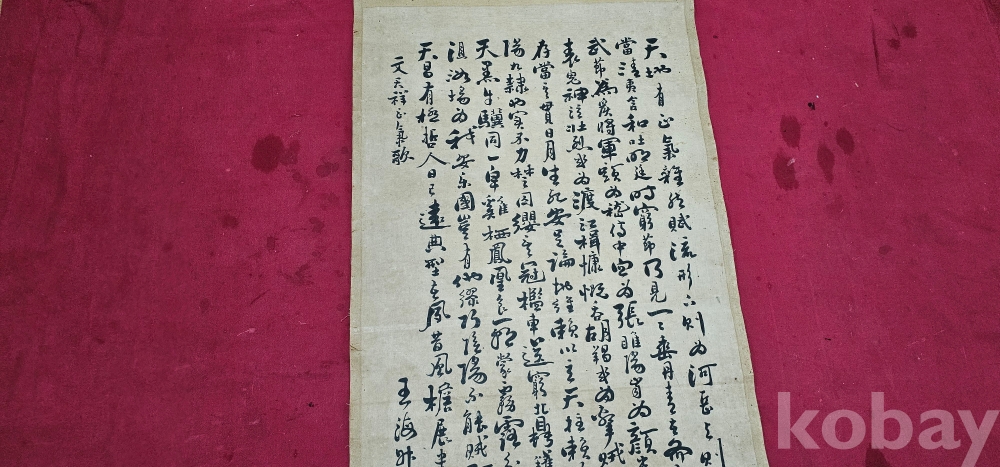 天地有正氣雜然賦流形下則為河岳上則
當清夷含和吐明庭時窮節乃見一一垂丹青在齊
武節為嚴將軍頭為嵇侍中血為張睢陽齒為顏常
表鬼神泣壯烈或為渡江楫慷慨吞胡羯或為擊賊
存當其貫日月生死安足論地維賴以立天柱賴
陽九隸也實不力楚囚纓其冠檻車送窮北鼎鑊
天黑牛驥同一皁雞栖鳳凰食一朝蒙霧露分
沮洳場為我安樂國豈有他繆巧陰陽不能賊
天曷有極哲人日已遠典型在夙昔風檐展書
文天祥正氣歌
王海
kobay